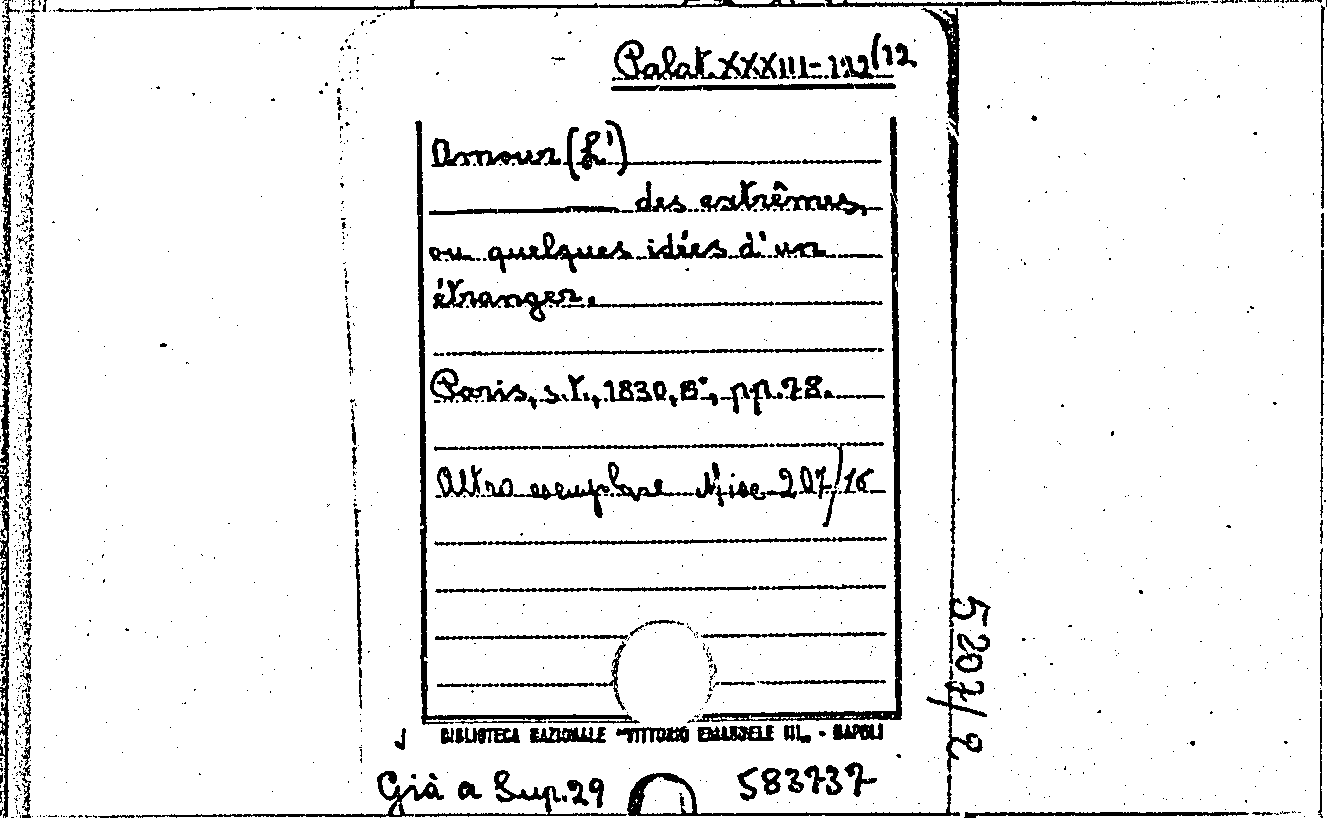 Palat. XXXIII-112(12
Amour (L')
des extrêmes,
ou quelques idées d'un
étranger.
Paris, s.t., 1830, 8°, pp. 78.
Altro esemplare Misc 207/16
BIBLIOTECA NAZIONALE "VITTORIO EMANUELE III„ - NAPOLI
Già a Sup. 29 583737
5207/2